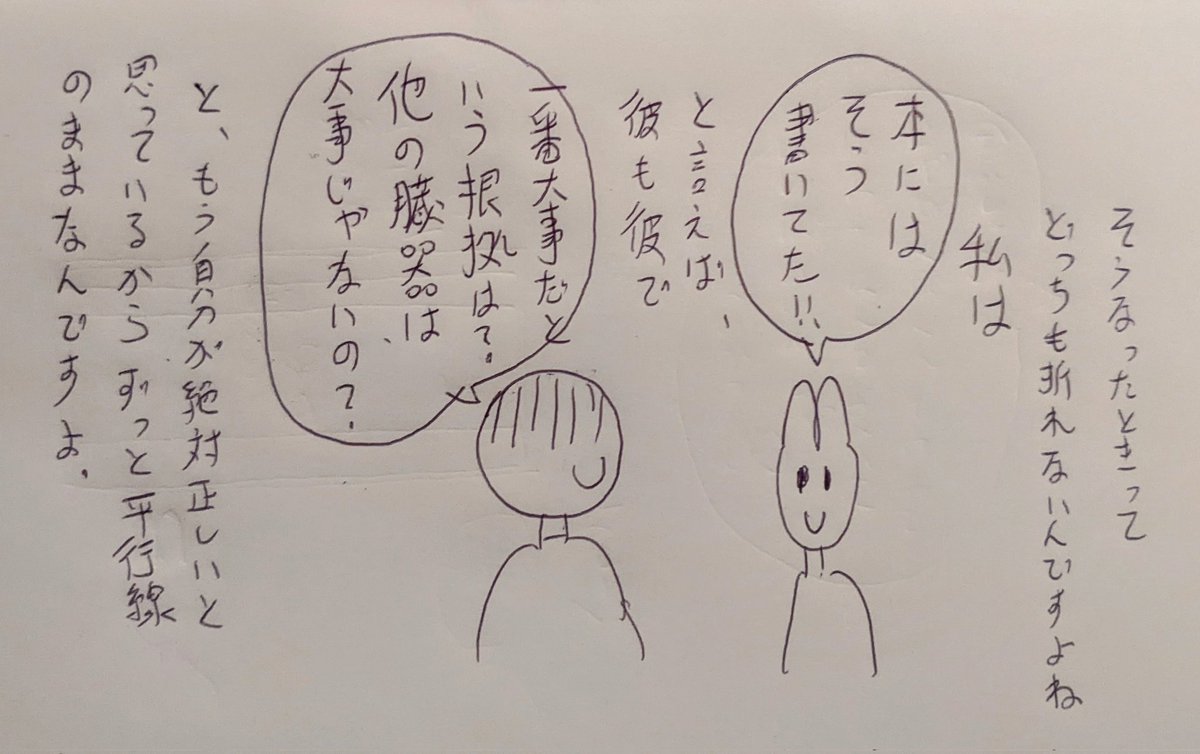 そうなったときって
どっちも折れないんですよね
私は
本には
そう
書いてた!!
と言えば、
彼も彼で
一番大事だと
いう根拠は?
他の臓器は
大事じゃないの?
と、もう自分が絶対正しいと
思っているからずっと平行線
のままなんですよ。